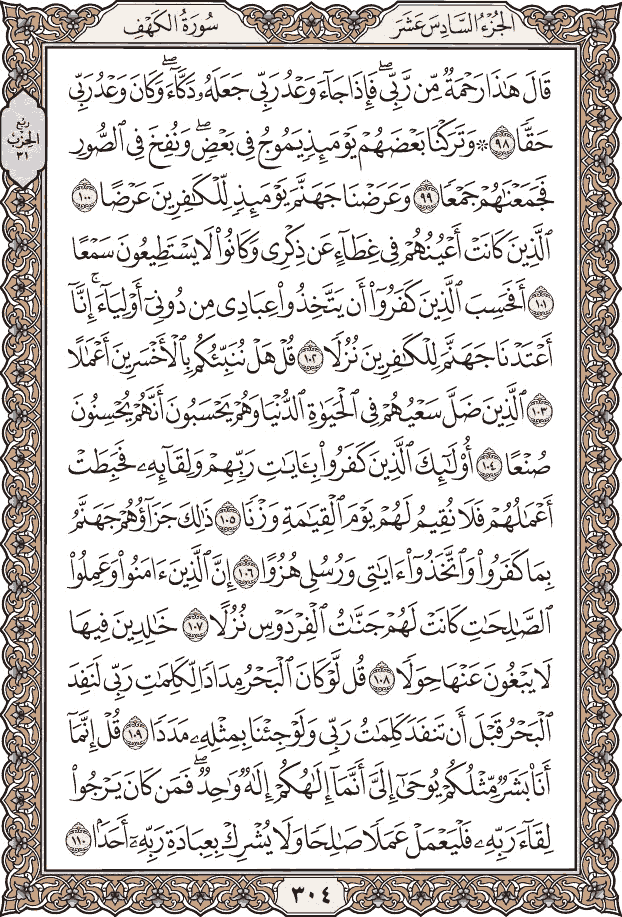 الجُزْءُ السَّادِسَ عَشَرَ
سُورَةُ الكَهْفِ
رُبْعُ
الْحِزْبِ
٣١
قَالَ هَٰذَا رَحْمَةٌ مِّن رَّبِّي ۖ فَإِذَا جَآءَ وَعْدُ رَبِّي جَعَلَهُۥ دَكَّآءَ ۖ وَكَانَ وَعْدُ رَبِّي
حَقًّا ٩٨ ۞ وَتَرَكْنَا بَعْضَهُمْ يَوْمَئِذٍ يَمُوجُ فِي بَعْضٍ ۖ وَنُفِخَ فِي ٱلصُّورِ
فَجَمَعْنَٰهُمْ جَمْعًا ٩٩ وَعَرَضْنَا جَهَنَّمَ يَوْمَئِذٍ لِّلْكَٰفِرِينَ عَرْضًا ١٠٠
ٱلَّذِينَ كَانَتْ أَعْيُنُهُمْ فِي غِطَآءٍ عَن ذِكْرِي وَكَانُوا۟ لَا يَسْتَطِيعُونَ سَمْعًا
١٠١ أَفَحَسِبَ ٱلَّذِينَ كَفَرُوٓا۟ أَن يَتَّخِذُوا۟ عِبَادِي مِن دُونِيٓ أَوْلِيَآءَ ۚ إِنَّآ
أَعْتَدْنَا جَهَنَّمَ لِلْكَٰفِرِينَ نُزُلًا ١٠٢ قُلْ هَلْ نُنَبِّئُكُم بِٱلْأَخْسَرِينَ أَعْمَٰلًا
١٠٣ ٱلَّذِينَ ضَلَّ سَعْيُهُمْ فِي ٱلْحَيَوٰةِ ٱلدُّنْيَا وَهُمْ يَحْسَبُونَ أَنَّهُمْ يُحْسِنُونَ
صُنْعًا ١٠٤ أُو۟لَٰٓئِكَ ٱلَّذِينَ كَفَرُوا۟ بِـَٔايَٰتِ رَبِّهِمْ وَلِقَآئِهِۦ فَحَبِطَتْ
أَعْمَٰلُهُمْ فَلَا نُقِيمُ لَهُمْ يَوْمَ ٱلْقِيَٰمَةِ وَزْنًا ١٠٥ ذَٰلِكَ جَزَآؤُهُمْ جَهَنَّمُ
بِمَا كَفَرُوا۟ وَٱتَّخَذُوٓا۟ ءَايَٰتِي وَرُسُلِي هُزُوًا ١٠٦ إِنَّ ٱلَّذِينَ ءَامَنُوا۟ وَعَمِلُوا۟
ٱلصَّٰلِحَٰتِ كَانَتْ لَهُمْ جَنَّٰتُ ٱلْفِرْدَوْسِ نُزُلًا ١٠٧ خَٰلِدِينَ فِيهَا
لَا يَبْغُونَ عَنْهَا حِوَلًا ١٠٨ قُل لَّوْ كَانَ ٱلْبَحْرُ مِدَادًا لِّكَلِمَٰتِ رَبِّي لَنَفِدَ
ٱلْبَحْرُ قَبْلَ أَن تَنفَدَ كَلِمَٰتُ رَبِّي وَلَوْ جِئْنَا بِمِثْلِهِۦ مَدَدًا ١٠٩ قُلْ إِنَّمَآ
أَنَا۠ بَشَرٌ مِّثْلُكُمْ يُوحَىٰٓ إِلَيَّ أَنَّمَآ إِلَٰهُكُمْ إِلَٰهٌ وَٰحِدٌ ۖ فَمَن كَانَ يَرْجُوا۟
لِقَآءَ رَبِّهِۦ فَلْيَعْمَلْ عَمَلًا صَٰلِحًا وَلَا يُشْرِكْ بِعِبَادَةِ رَبِّهِۦٓ أَحَدًۢا ١١٠
٣٠٤